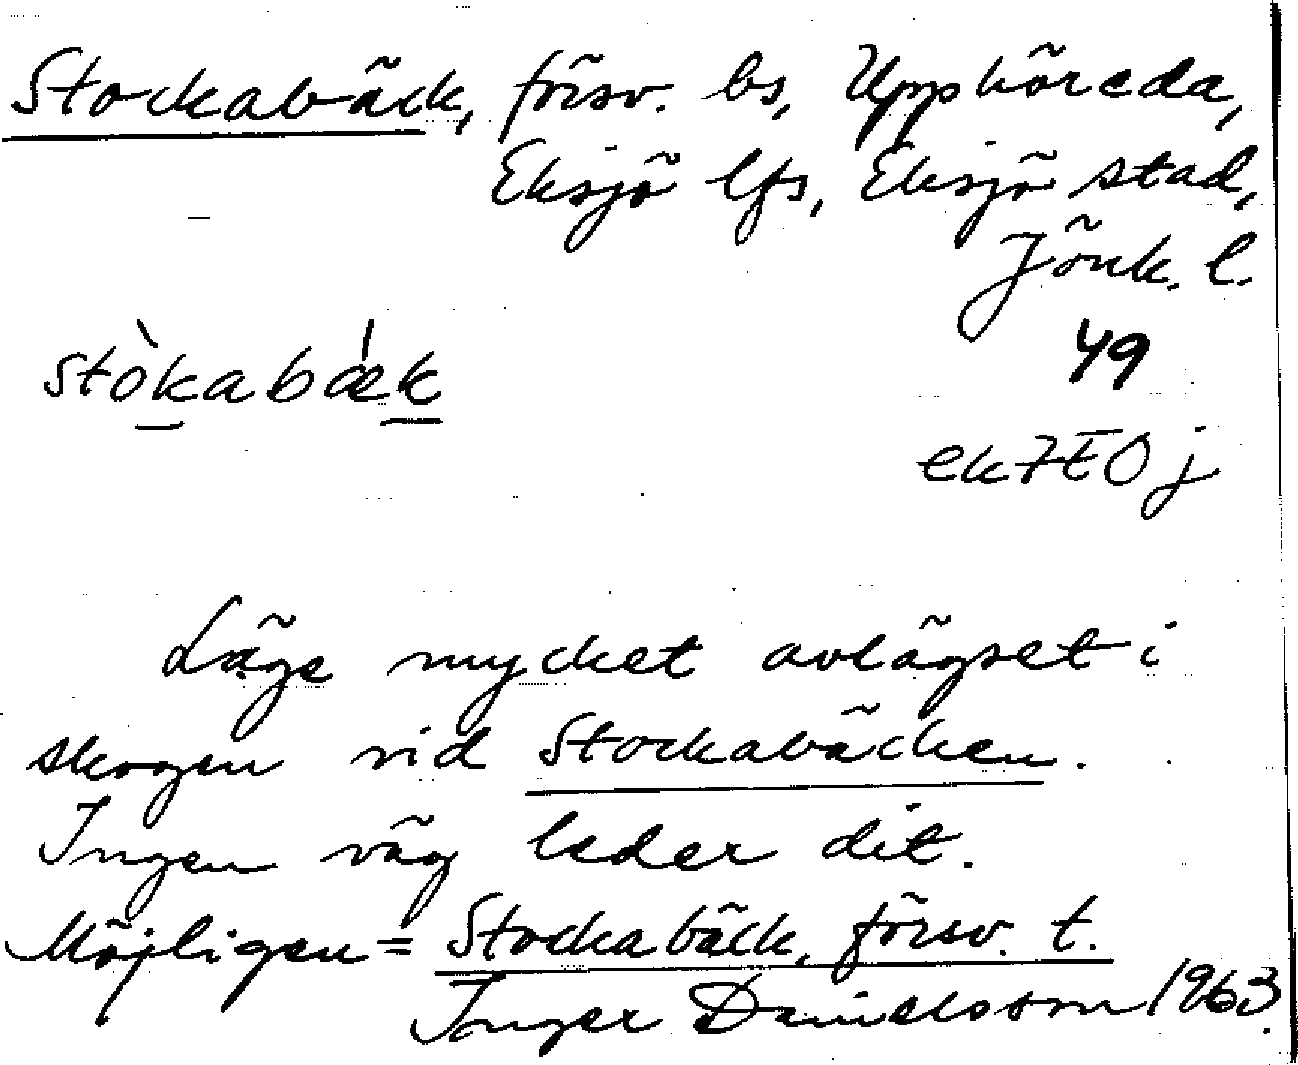 Stockabäck, försv. bs, Upphöreda,
Eksjö lfs, Eksjö stad,
Jönk. l.
49
stòkabæ̀k
ek7E0j
Läge mycket avlägset i
skogen vid Stockabäcken.
Ingen väg leder dit.
Möjligen = Stockabäck, försv. t.
Inger Danielsson 1963.